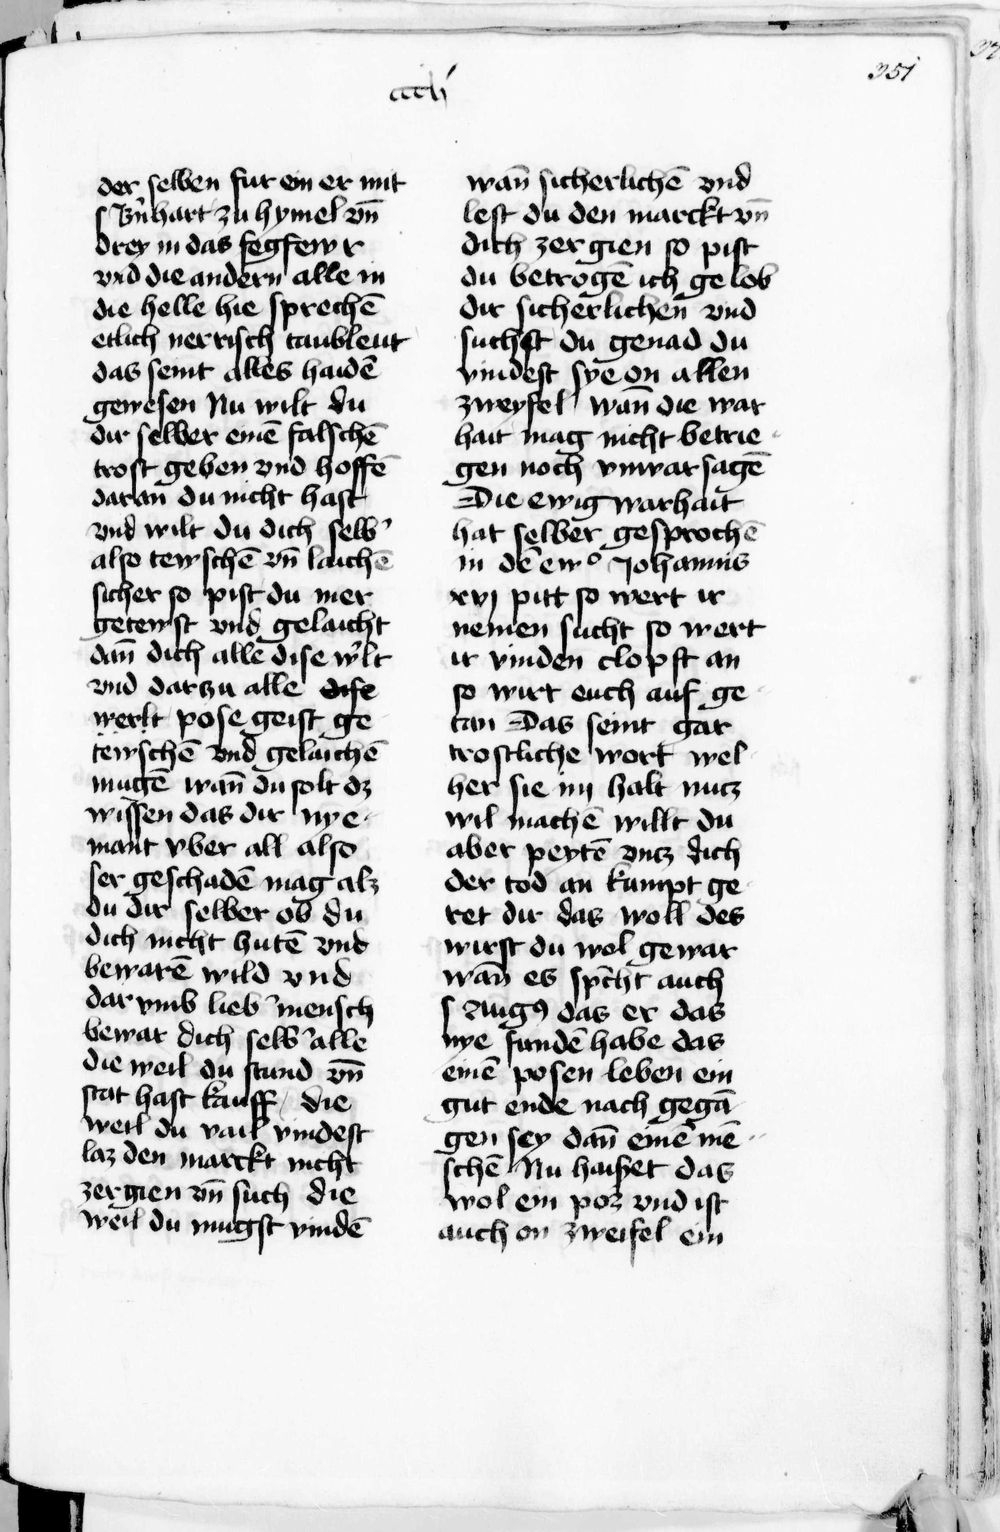 351
cccli
der selben fur ein er mit
s Bn̄hart zu hymel vn̄
drey in das fegfewr
vnd die andern alle in
die helle hie sprechē
etlich nerrisch taubleut
das seint alles haidē
gewesen Nu wilt du
dir selber einē falschē
trost geben vnd hoffē
daran du nicht hast
vnd wilt du dich selb᾽
also tewschē vn̄ laichē
sicher so pist du mer
getewst vnd gelaicht
dan̄ dich alle dise w᾽lt
vnd darzu alle dise
werlt pose geist ge
tewschē vnd gelaichē
mugē wan̄ du solt dz
wissen das dir nye
mant vber all also
ser geschadē mag alz
du dir selber ob du
dich nicht hutē vnd
bewarē wild vnd
dar vmb lieb᾽ mensch
bewar dich selb᾽ alle
die weil du stund vn̄
stat hast kauff die
weil du vail vindest
laz den marckt nicht
zergien vn̄ such die
weil du mugst vindē
wan̄ sicherlichē vnd
lest du den marckt vn̄
dich zergien so pist
du betrogē ich gelob
dir sicherlichen vnd
suchst du genad du
vindest sye on allen
zweyfel wan̄ die war
hait mag nicht betrie
gen noch vnwar sagē
Die ewig warhait
hat selber gesprochē
in dē ewº Johannis
xvj pitt so wert ir
nemen sucht so wert
ir vinden clopft an
so wirt euch auf ge
tan Das seint gar
trostliche wort wel
her sie im halt nutz
wil machē willt du
aber peytē vntz dich
der tod an kumpt ge
ret dir das woll des
wirst du wol gewar
wan̄ es sp̄cht auch
s Augꝰ das er das
nye fundē habe das
einē posen leben ein
gut ende nach gegā
gen sey dan̄ einē mē
schē Nu haisset das
wol ein poz vnd ist
auch on zweifel ein